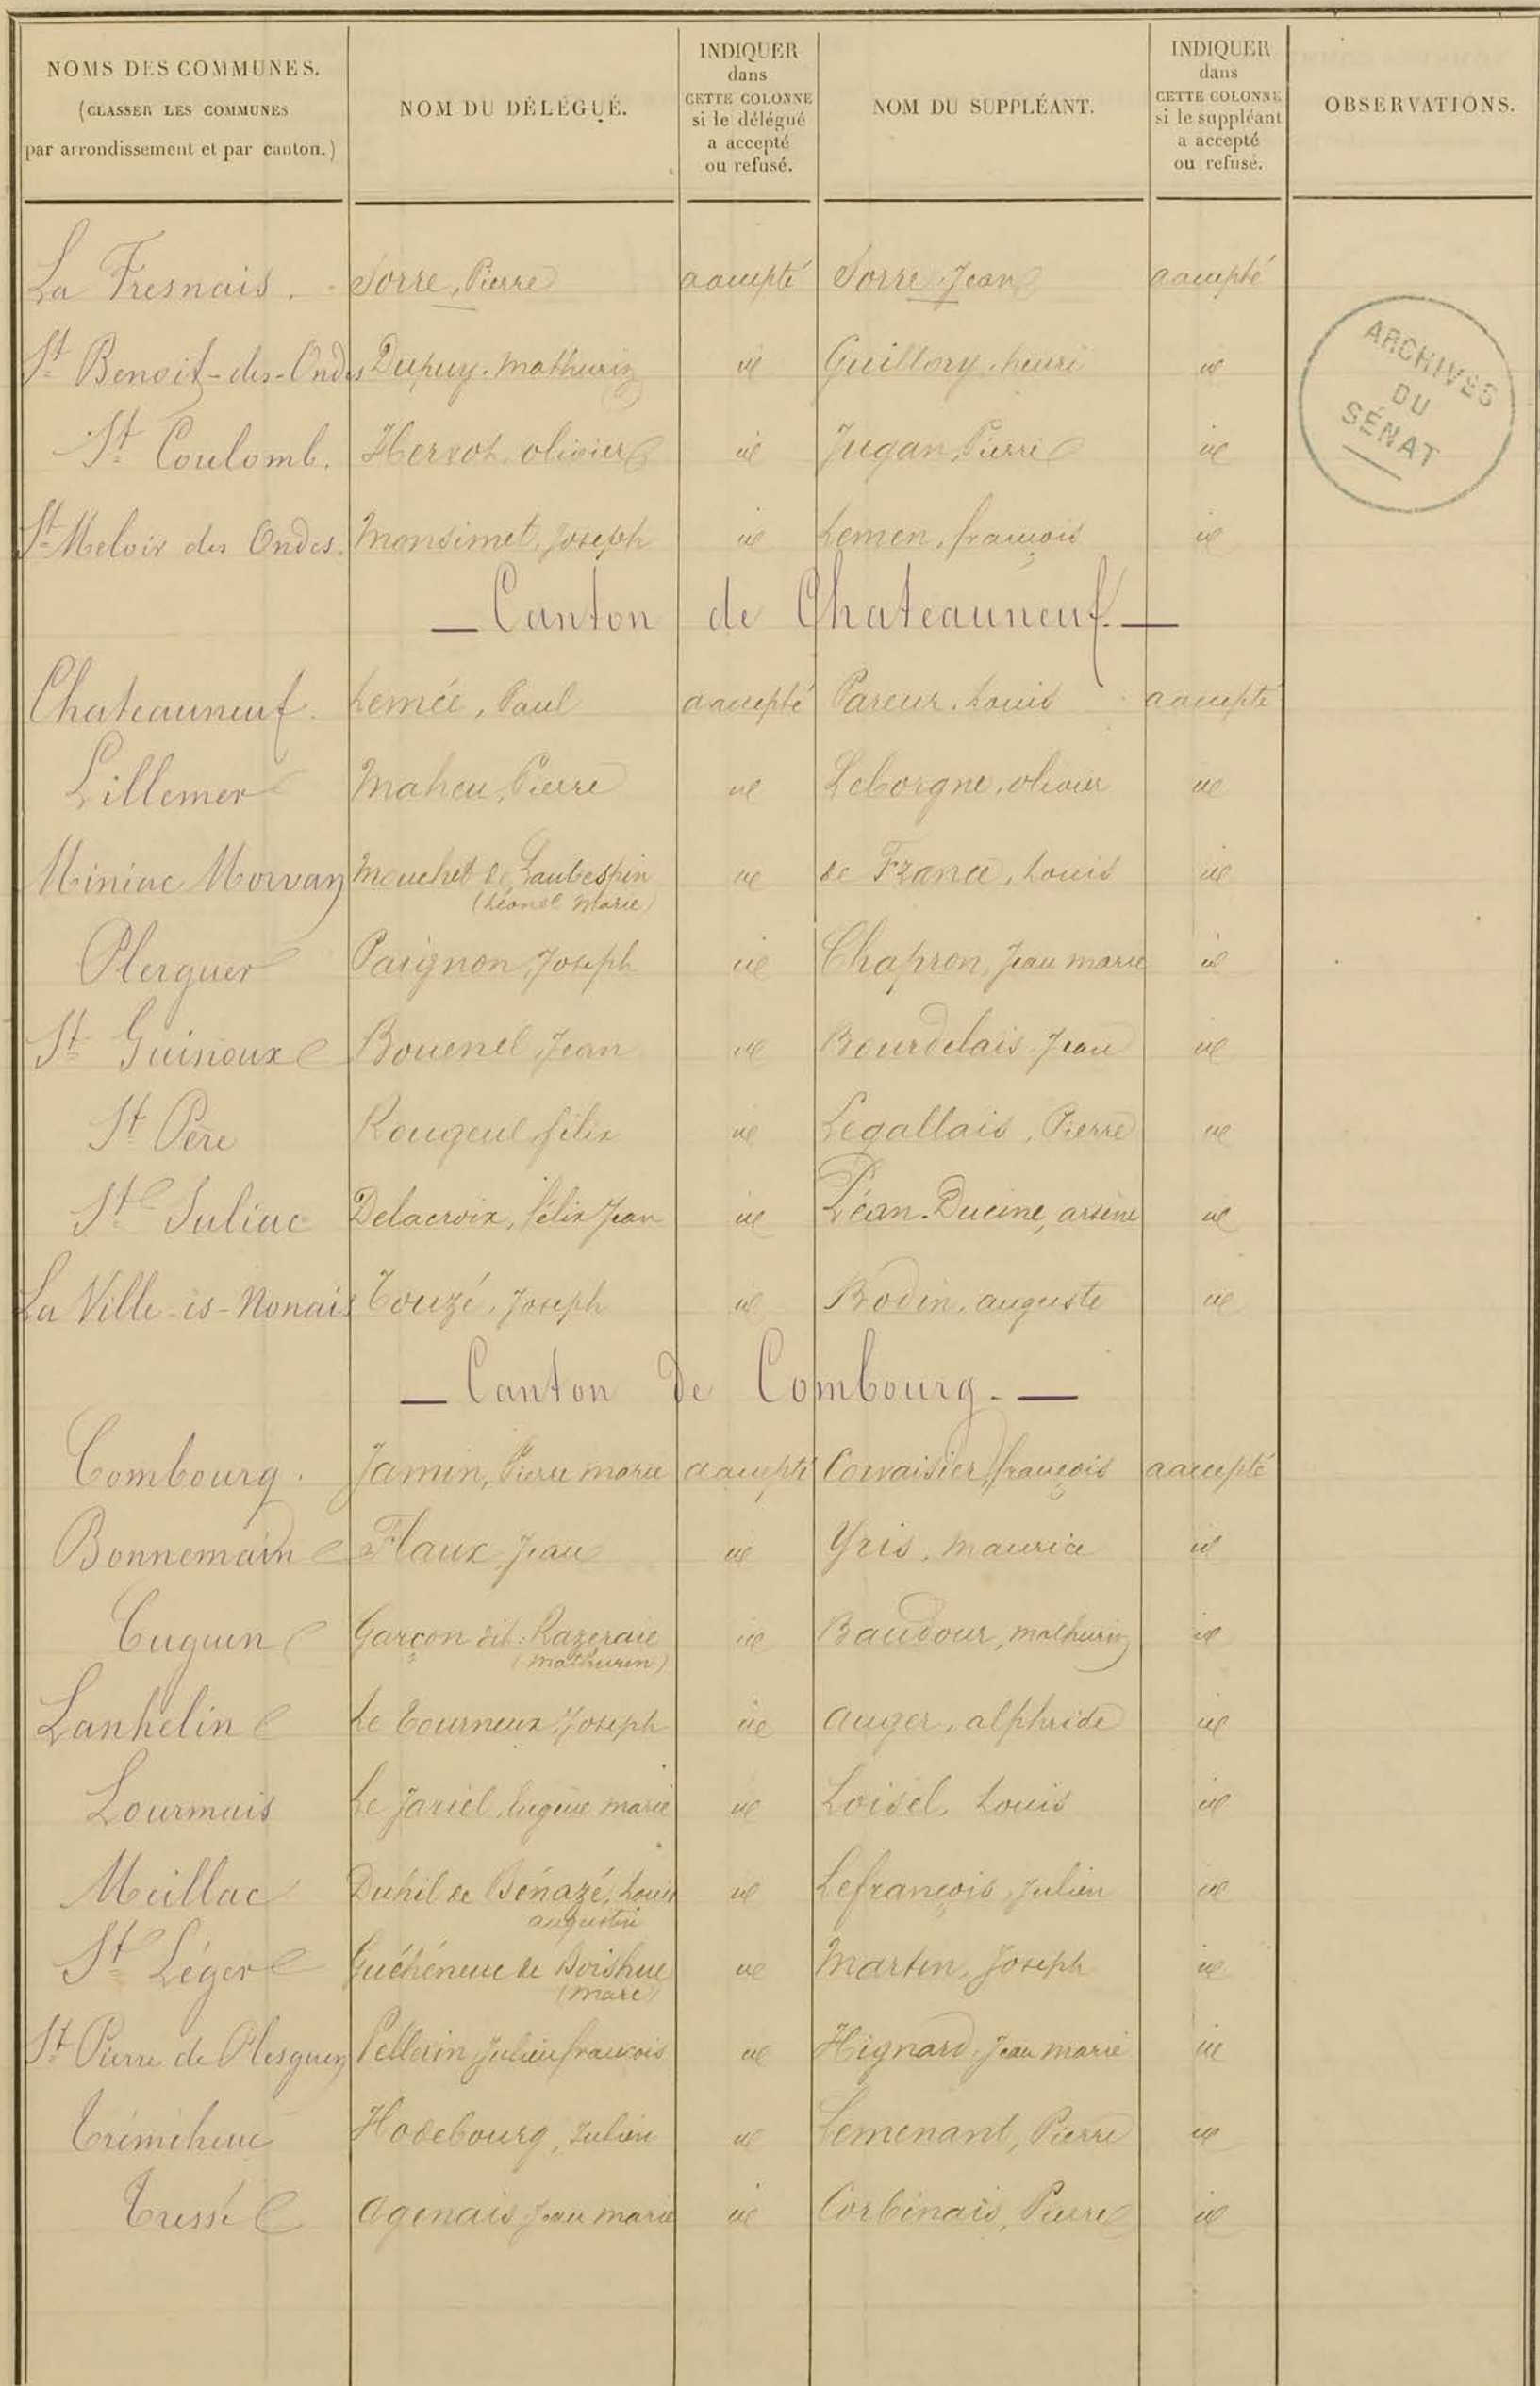 NOMS DES COMMUNES.
(CLASSER LES COMMUNES
par arrondissement et par canton.)
NOM DU DÉLÉGUÉ.
INDIQUER
dans
CETTE COLONNE
si le délégué
a accepté
ou refusé.
NOM DU SUPPLÉANT.
INDIQUER
dans
CETTE COLONNE
si le suppléant
a accepté
ou refusé.
OBSERVATIONS.
La Fresnais. Sorre, Pierre a accepté Sorre, Jean a accepté
St Benoit-des-Ondes Dupuy, Mathurin id Guillory, henri id
St Coulomb. Hervot, olivier id Jugan, Pierre id
St Meloir des Ondes. Monsimet, Joseph id Lemen, françois id
ARCHIVES
DU
SÉNAT
— Canton de Chateauneuf. —
Chateauneuf. Lemée, Paul a accepté Pareur, Louis a accepté
Lillemer Maheu, Pierre id Leborgne, olivier id
Miniac Morvan Mouchet de Laubespin id de France, Louis id
(Léonel Marie)
Plerguer Paignon, Joseph id Chapron, Jean marie id
St Guinoux Bouenel, Jean id Bourdelais, Jean id
St Père Rougeul félix id Legallais, Pierre id
St Suliac Delacroix, Félix Jean id Péan-Ducine, arsène id
La Ville-ès-Nonais Touzé, Joseph id Bodin, auguste id
— Canton de Combourg. —
Combourg. Jamin, Pierre marie a accepté Corvaisier, françois a accepté
Bonnemain Flaux, Jean id Yris, maurice id
Cuguen Garçon dit: Razeraie id Baudour, mathurin id
(Mathurin)
Lanhelin Le Tourneux, Joseph id Auger, alphride id
Lourmais Le Jariel, Eugène marie id Loisel, Louis id
Meillac Duhil de Bénazé, Louis id Lefrançois, Julien id
augustin
St Léger Guéhéneuc de Boishue id Martin, Joseph id
(Marc)
St Pierre de Plesguen Pellerin Julien françois id Hignard, Jean marie id
Tréméheuc Hodebourg, Julien id Lemenant, Pierre id
Tressé Agenais Jean marie id Corbinais, Pierre id